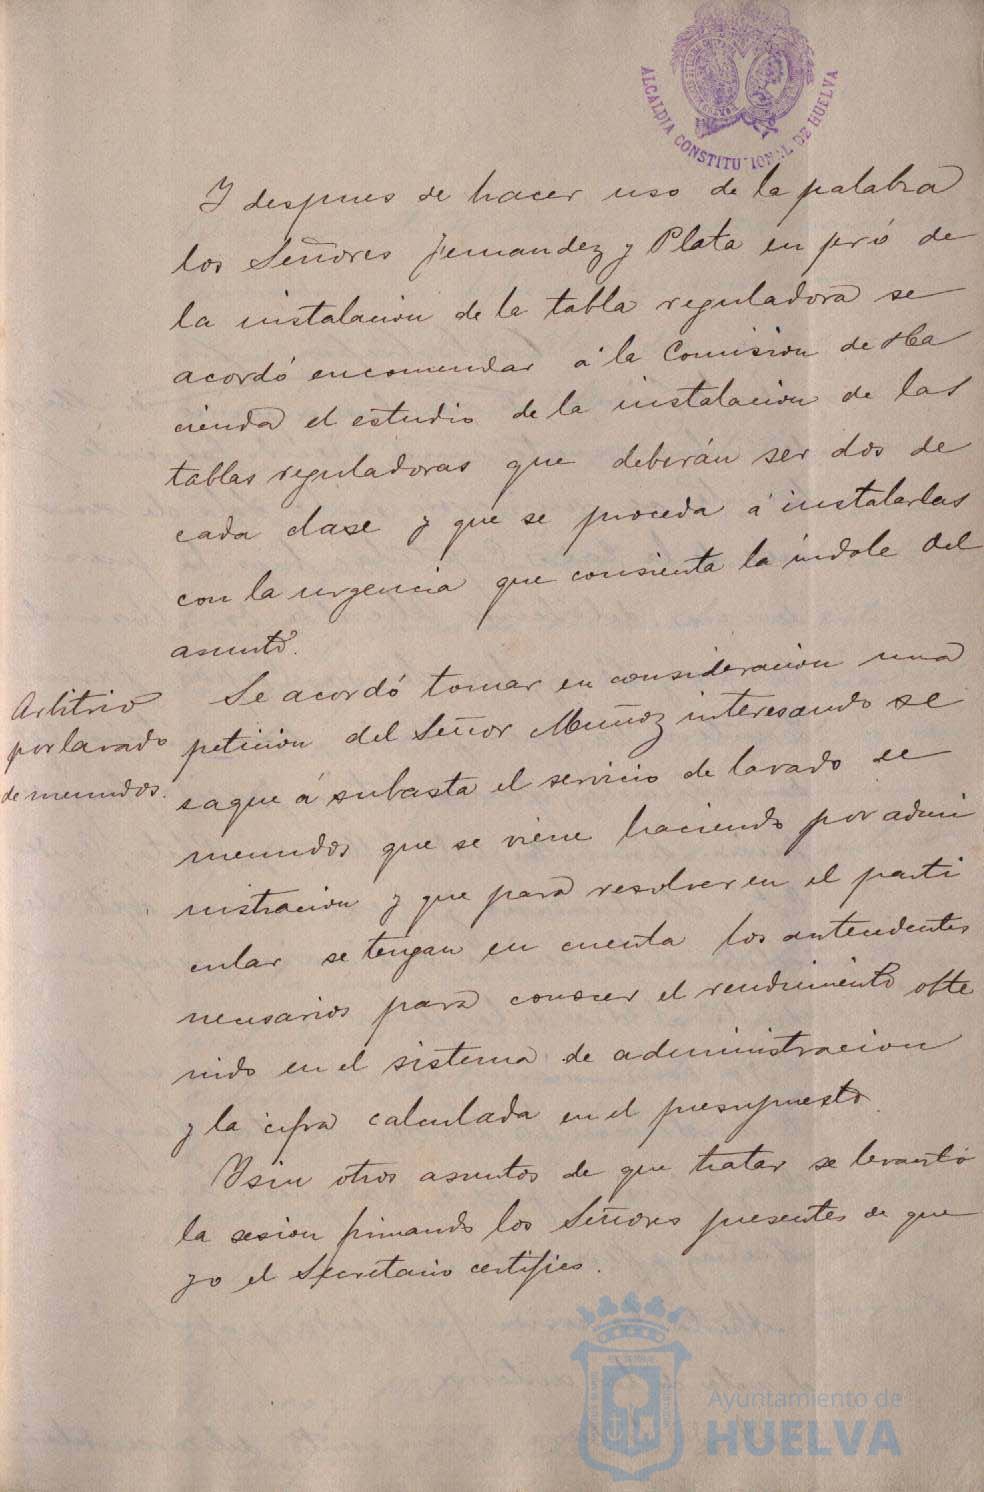 ALCALDIA CONSTITUCIONAL DE HUELVA
Y despues de hacer uso de la palabra
los Señores Fernandez y Plata en pró de
la instalacion de la tabla reguladora se
acordó encomendar á la Comision de Ha
cienda el estudio de la instalacion de las
tablas reguladoras que deberán ser dos de
cada clase y que se proceda á instalarlas
con la urgencia que consienta la índole del
asunto.
Arbitrio
por lavado
de menudos.
Se acordó tomar en consideracion una
peticion del Señor Muñoz interesando se
saque á subasta el servicio de lavado de
menudos que se viene haciendo por admi
nistracion y que para resolver en el parti
cular se tengan en cuenta los antecedentes
necesarios para conocer el rendimiento obte
nido en el sistema de administracion
y la cifra calculada en el presupuesto.
Y sin otros asuntos de que tratar se levantó
la sesion firmando los Señores presentes de que
yo el Secretario certifico.
Ayuntamiento de
HUELVA